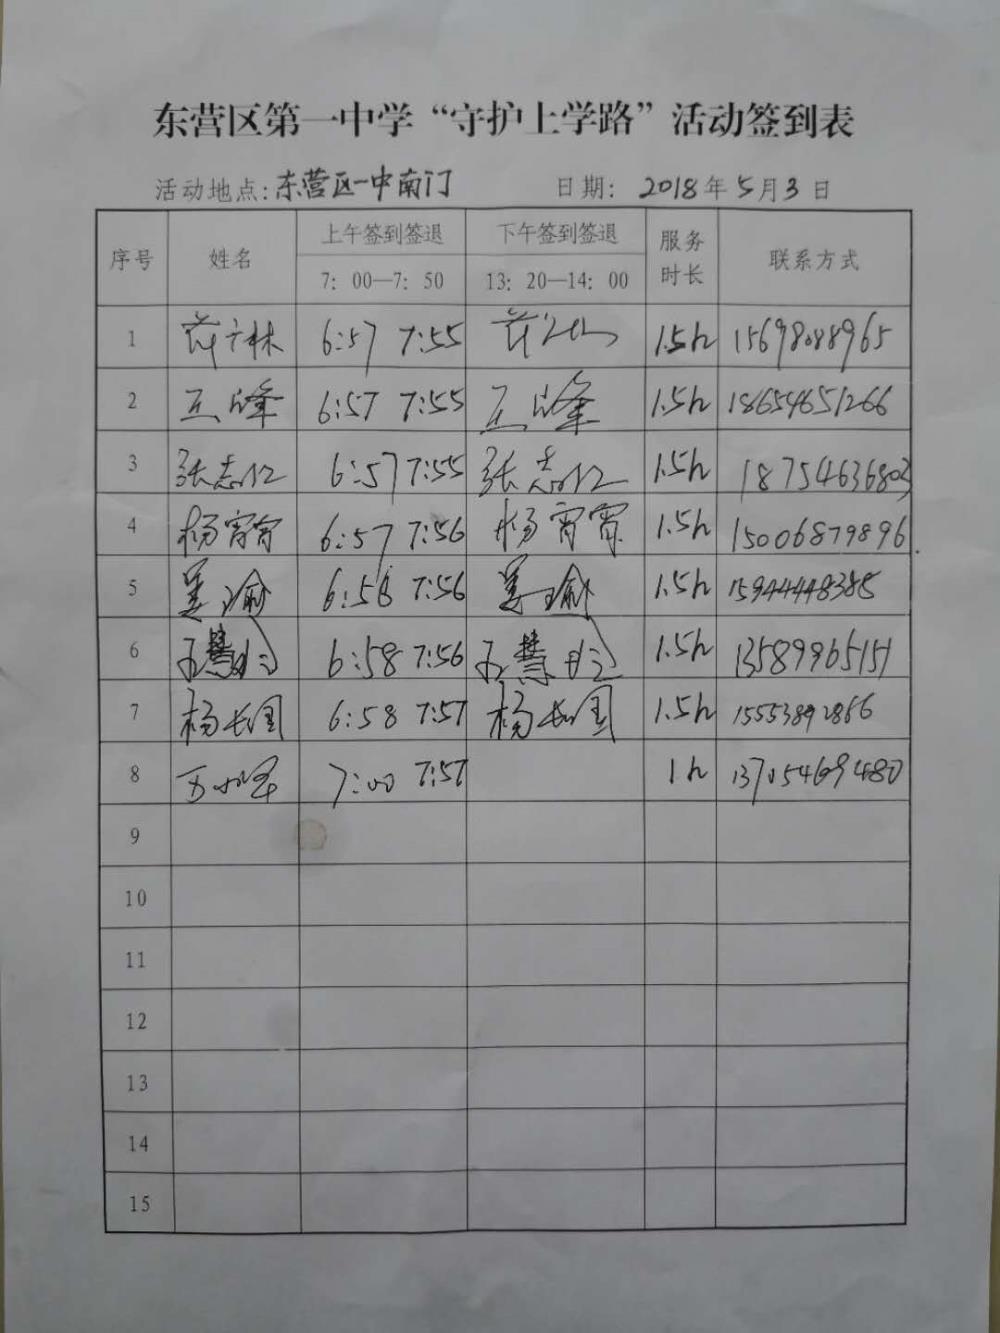 东营区第一中学“守护上学路”活动签到表
活动地点:东营区一中南门 日期: 2018年5月3日
序号 姓名 上午签到签退 下午签到签退 服务时长 联系方式
7: 00—7: 50 13: 20—14: 00
1 林 6:57 7:55 1.5h 15698088965
2 峰 6:57 7:55 峰 1.5h 18654651266
3 张志 6:57 7:55 张志 1.5h 18754636803
4 杨宵宵 6:57 7:56 杨宵宵 1.5h 15006879896
5 姜瑜 6:58 7:56 姜瑜 1.5h 15944448385
6 慧 6:58 7:56 慧 1.5h 13589965151
7 杨长国 6:58 7:57 杨长国 1.5h 15553892866
8 7:00 7:57 1h 13705469480
9
10
11
12
13
14
15